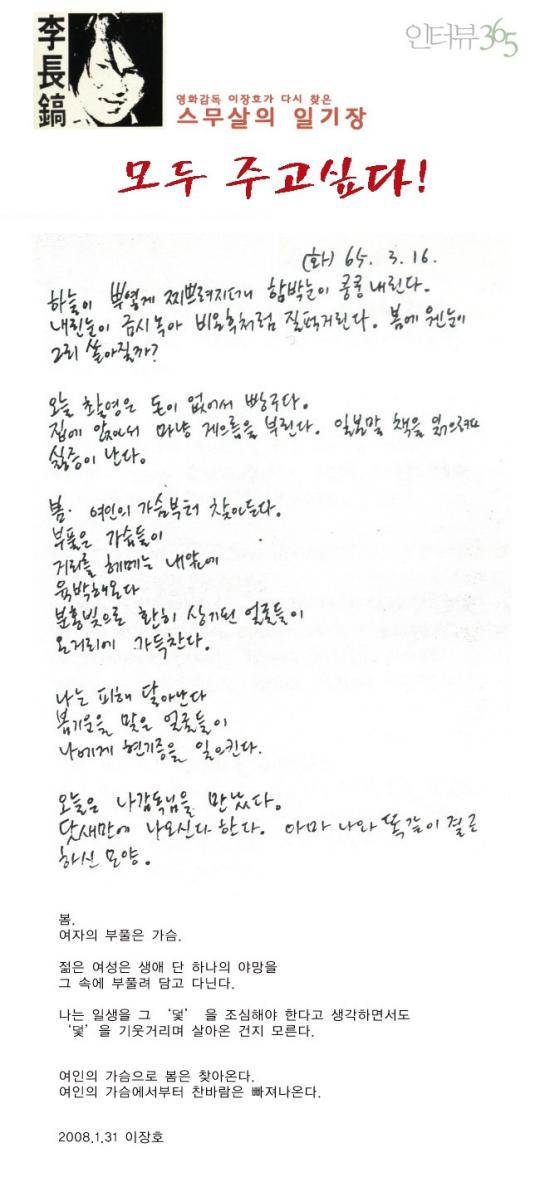 李長鎬
인터뷰365
영화감독 이장호가 다시 찾은
스무살의 일기장
모두 주고싶다!
(화) 65. 3. 16.
하늘이 뿌옇게 찌쁘려지더니 함박눈이 콩콩 내린다.
내린눈이 금시 녹아 비온후처럼 질퍽거린다. 봄에 웬눈이
그리 쏟아질까?
오늘 촬영은 돈이 없어서 빵구다.
집에 앉아서 마냥 게으름을 부린다. 일본말 책을 읽으려면
싫증이 난다.
봄. 여인의 가슴부터 찾아든다.
부풀은 가슴들이
거리를 헤메는 내앞에
육박해온다
분홍빛으로 환히 상기된 얼굴들이
온거리에 가득찬다.
나는 피해 달아난다
봄기운을 맡은 얼굴들이
나에게 현기증을 일으킨다.
오늘은 나감독님을 만났다.
닷새만에 나오신다 한다. 아마 나와 똑같이 결근
하신 모양.
봄.
여자의 부풀은 가슴.
젊은 여성은 생애 단 하나의 야망을
그 속에 부풀려 담고 다닌다.
나는 일생을 그 ‘덫’ 을 조심해야 한다고 생각하면서도
‘덫’ 을 기웃거리며 살아온 건지 모른다.
여인의 가슴으로 봄은 찾아온다.
여인의 가슴에서부터 찬바람은 빠져나온다.
2008.1.31 이장호